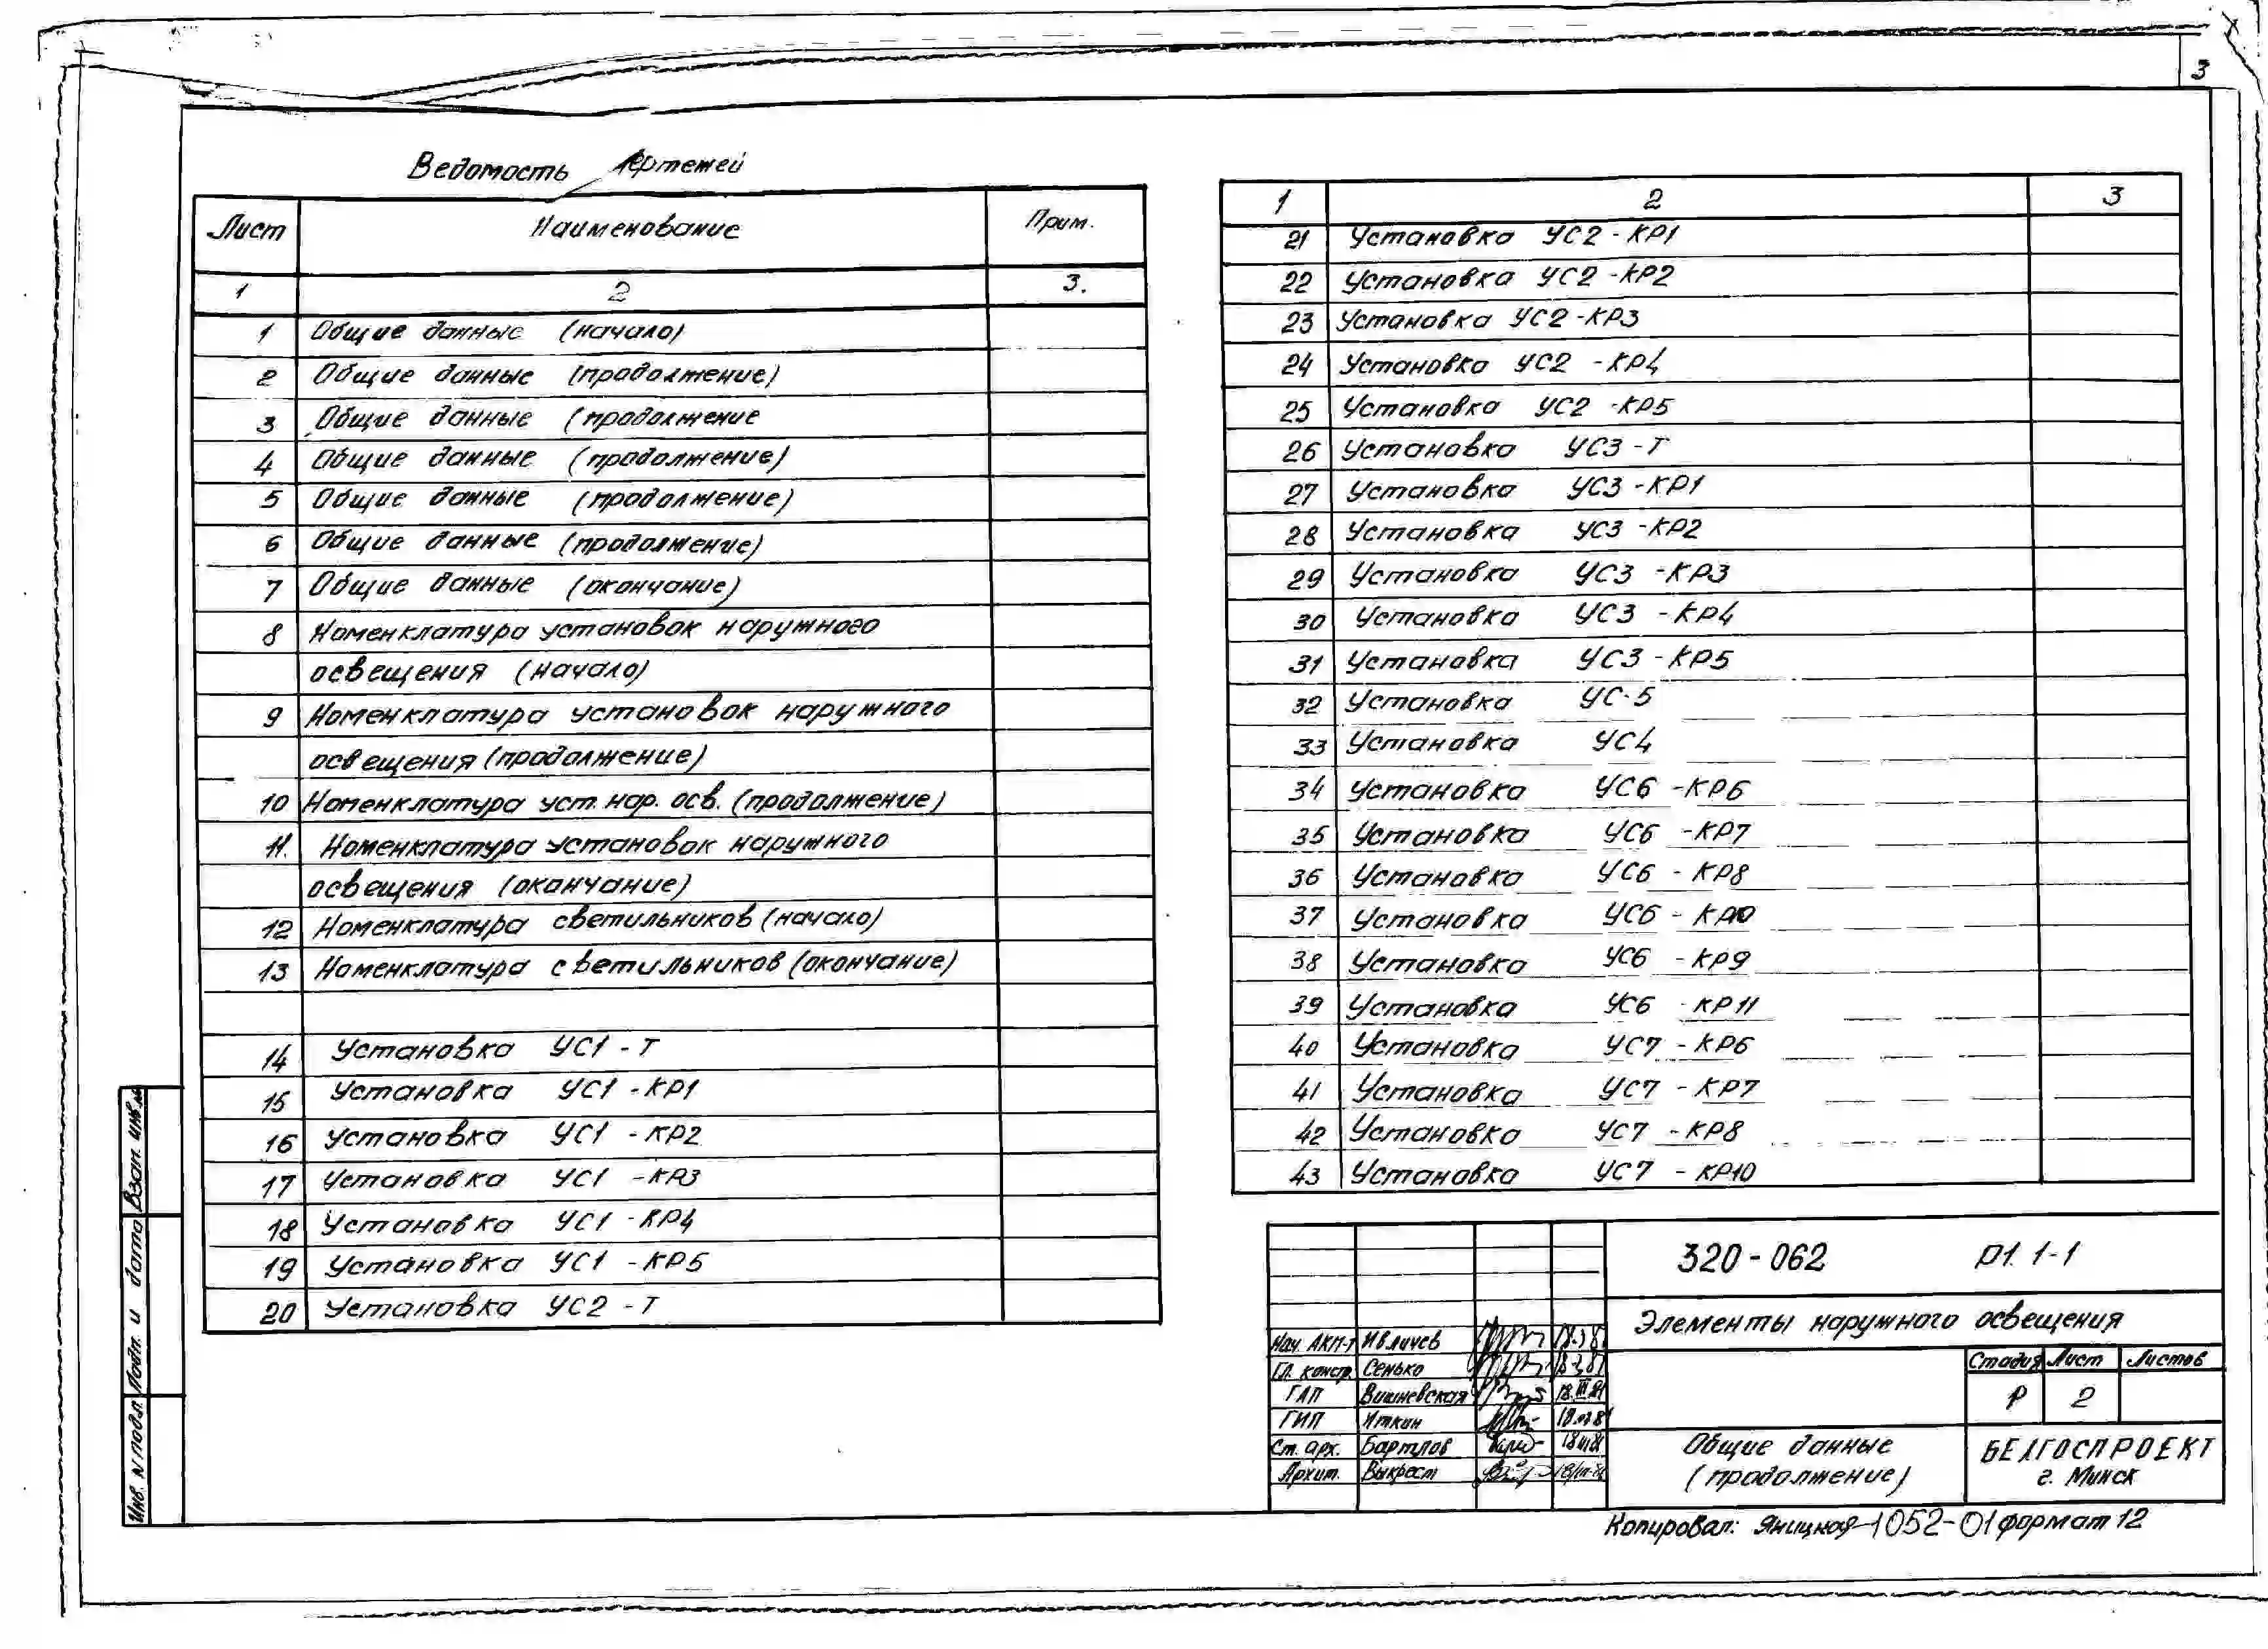 3
Ведомость чертежей
Лист Наименование Прим.
1 2 3.
1 Общие данные (начало)
2 Общие данные (продолжение)
3 Общие данные (продолжение
4 Общие данные (продолжение)
5 Общие данные (продолжение)
6 Общие данные (продолжение)
7 Общие данные (окончание)
8 Номенклатура установок наружного
освещения (начало)
9 Номенклатура установок наружного
освещения (продолжение)
10 Номенклатура уст. нар. осв. (продолжение)
11. Номенклатура установок наружного
освещения (окончание)
12 Номенклатура светильников (начало)
13 Номенклатура светильников (окончание)
14 Установка УС1 - Т
15 Установка УС1 - КР1
16 Установка УС1 - КР2
17 Установка УС1 - КР3
18 Установка УС1 - КР4
19 Установка УС1 - КР5
20 Установка УС2 - Т
1 2 3
21 Установка УС2 - КР1
22 Установка УС2 - КР2
23 Установка УС2 - КР3
24 Установка УС2 - КР4
25 Установка УС2 - КР5
26 Установка УС3 - Т
27 Установка УС3 - КР1
28 Установка УС3 - КР2
29 Установка УС3 - КР3
30 Установка УС3 - КР4
31 Установка УС3 - КР5
32 Установка УС-5
33 Установка УС4
34 Установка УС6 - КР6
35 Установка УС6 - КР7
36 Установка УС6 - КР8
37 Установка УС6 - КР10
38 Установка УС6 - КР9
39 Установка УС6 - КР11
40 Установка УС7 - КР6
41 Установка УС7 - КР7
42 Установка УС7 - КР8
43 Установка УС7 - КР10
320-062 Р1. 1-1
Элементы наружного освещения
Нач. АКМ-1 Ивличев
Гл. констр. Сенько
ГАП Вишневская 18.III.81
ГИП Иткин
Ст. арх. Бартлов 18 III 81
Архит. Выкрест
Стадия Лист Листов
Р 2
Общие данные
(продолжение)
БЕЛГОСПРОЕКТ
г. Минск
Копировал: Яницкая 1052-01 формат 12
Взам. инв. №
Подп. и дата
Инв. N подл.